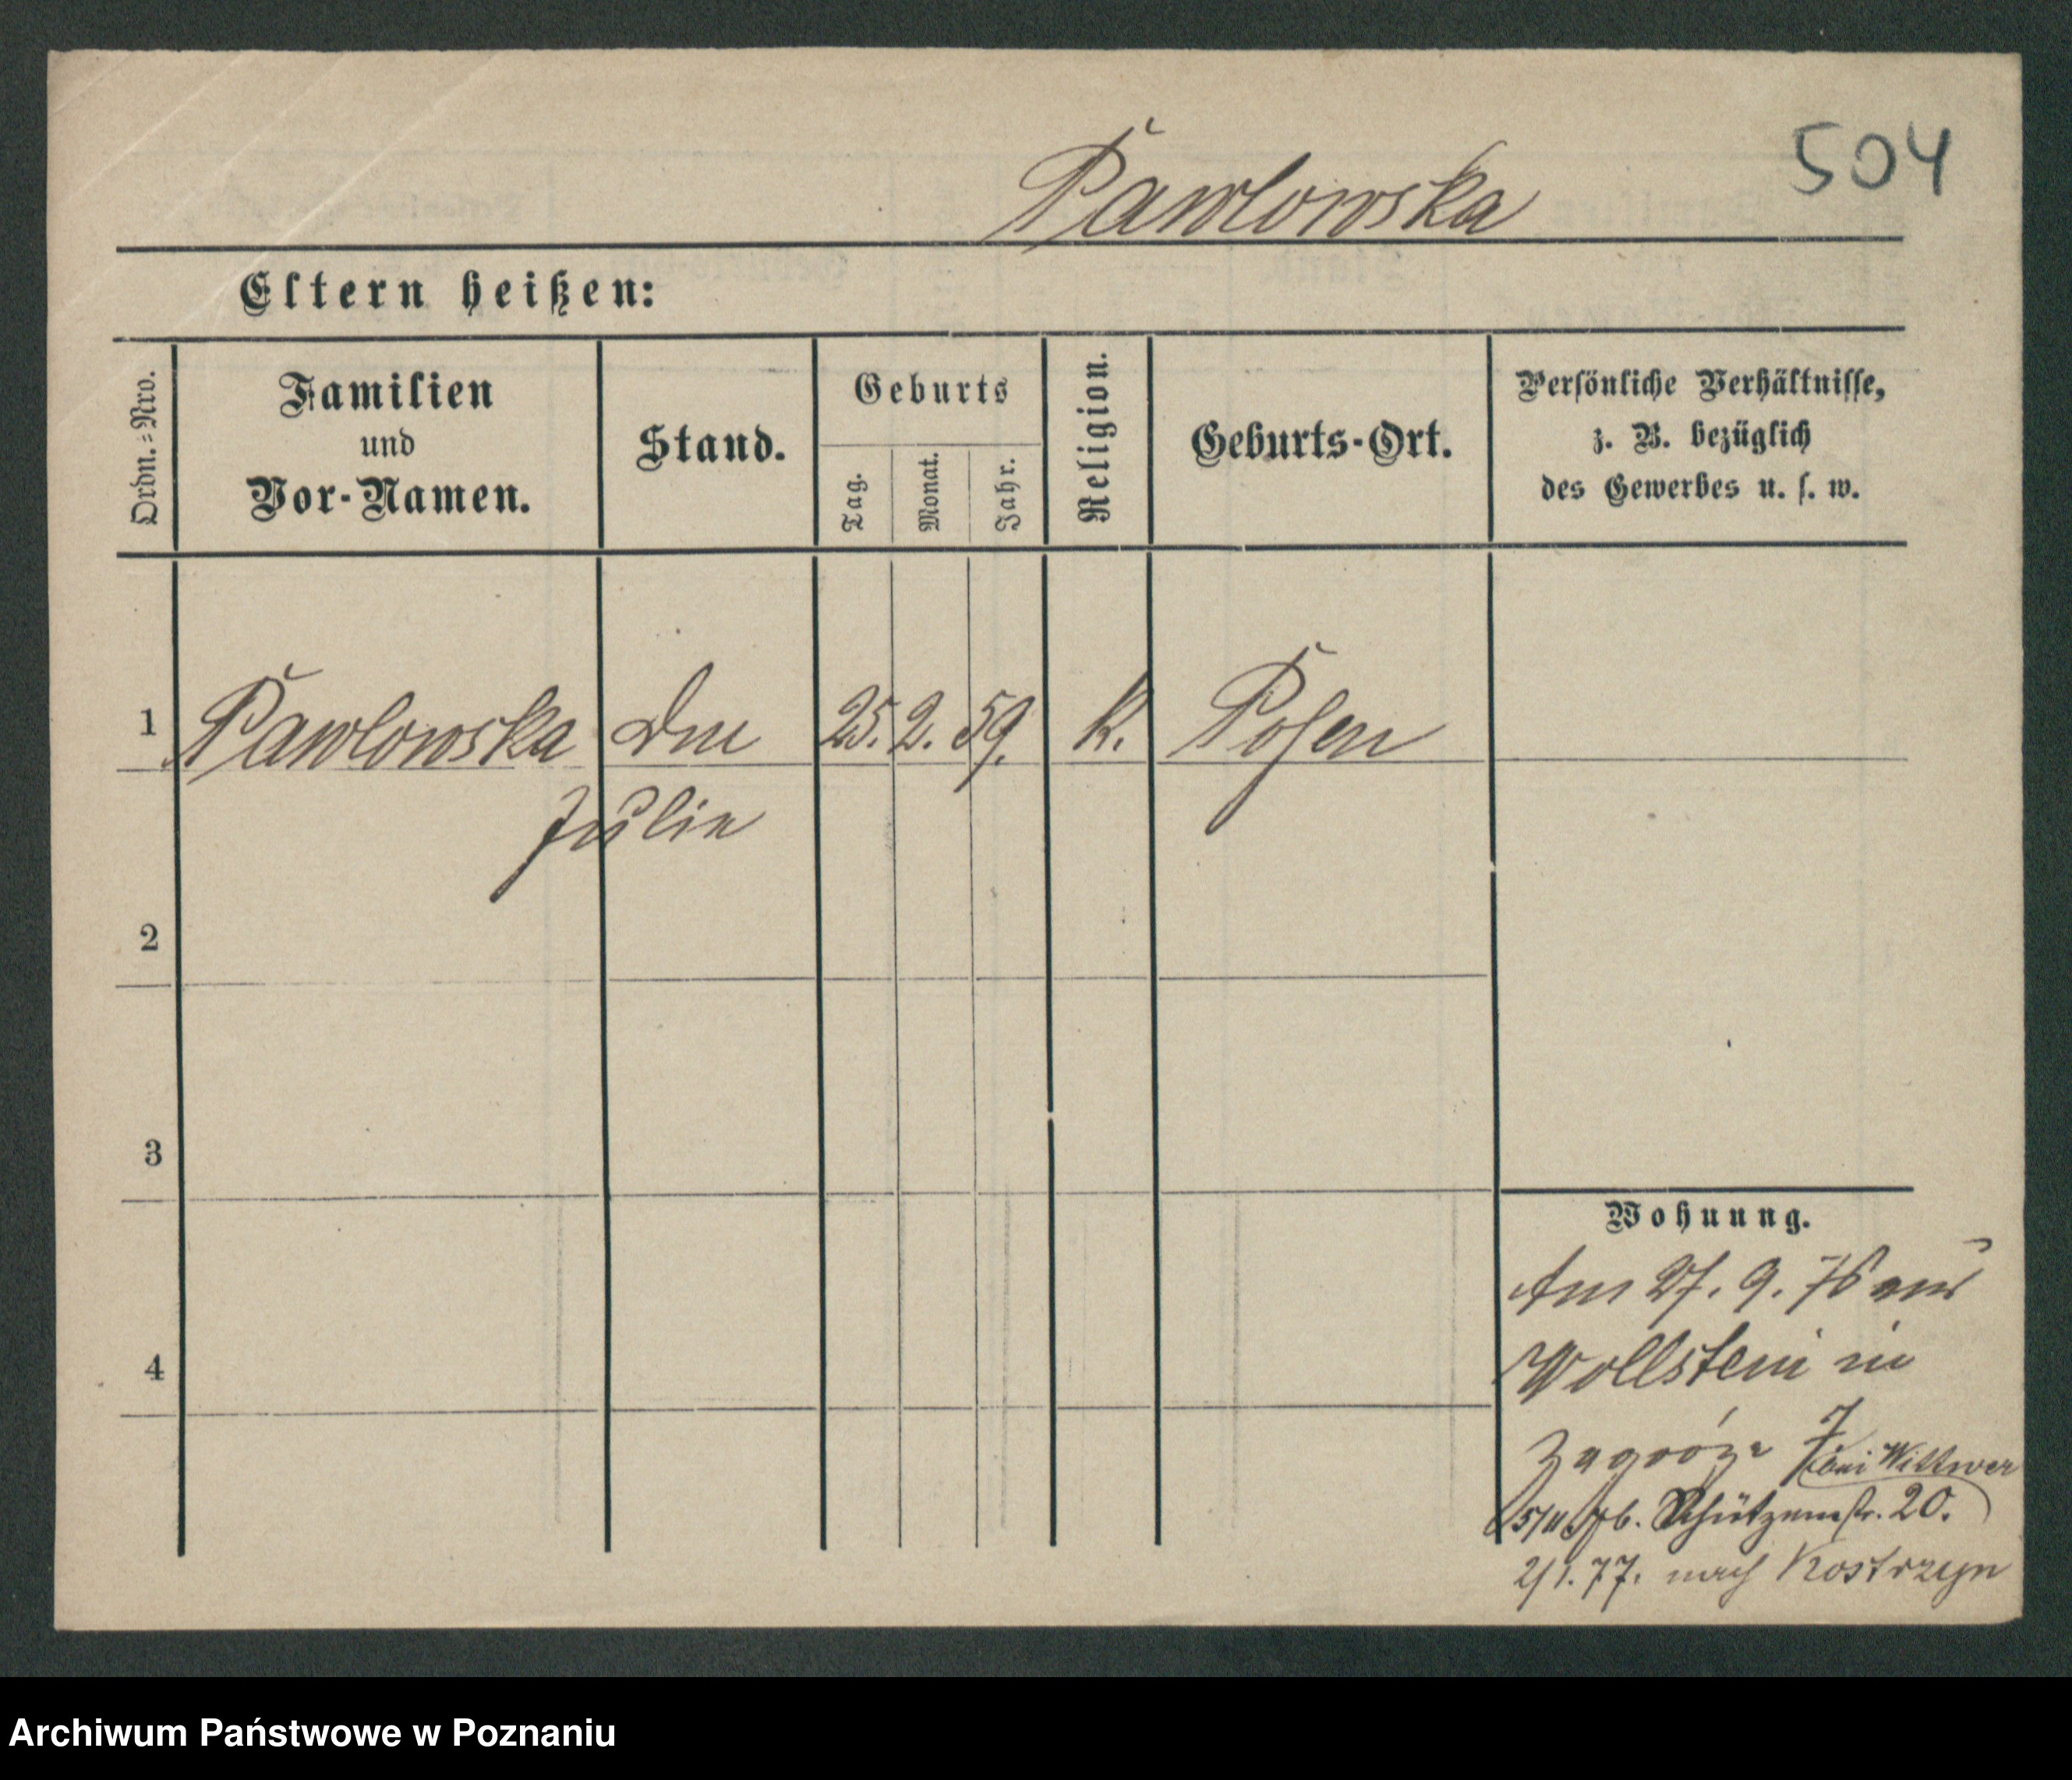 504
Pawlowska
Eltern heißen:
Ordn.=Nro.
Familien
und
Vor-Namen.
Stand.
Geburts
Tag.
Monat.
Jahr.
Religion.
Geburts-Ort.
Persönliche Verhältnisse,
z. B. bezüglich
des Gewerbes u. s. w.
1 Pawlowska 25. 2. 59. k. Posen
Julie
2
3
4
Wohnung.
Am 27. 9. 76 aus
Wollstein in
Zagórze 7 bei Wittwer
5/11 76. Schützenstr. 20.
2/1. 77. nach Kostrzyn
Archiwum Państwowe w Poznaniu